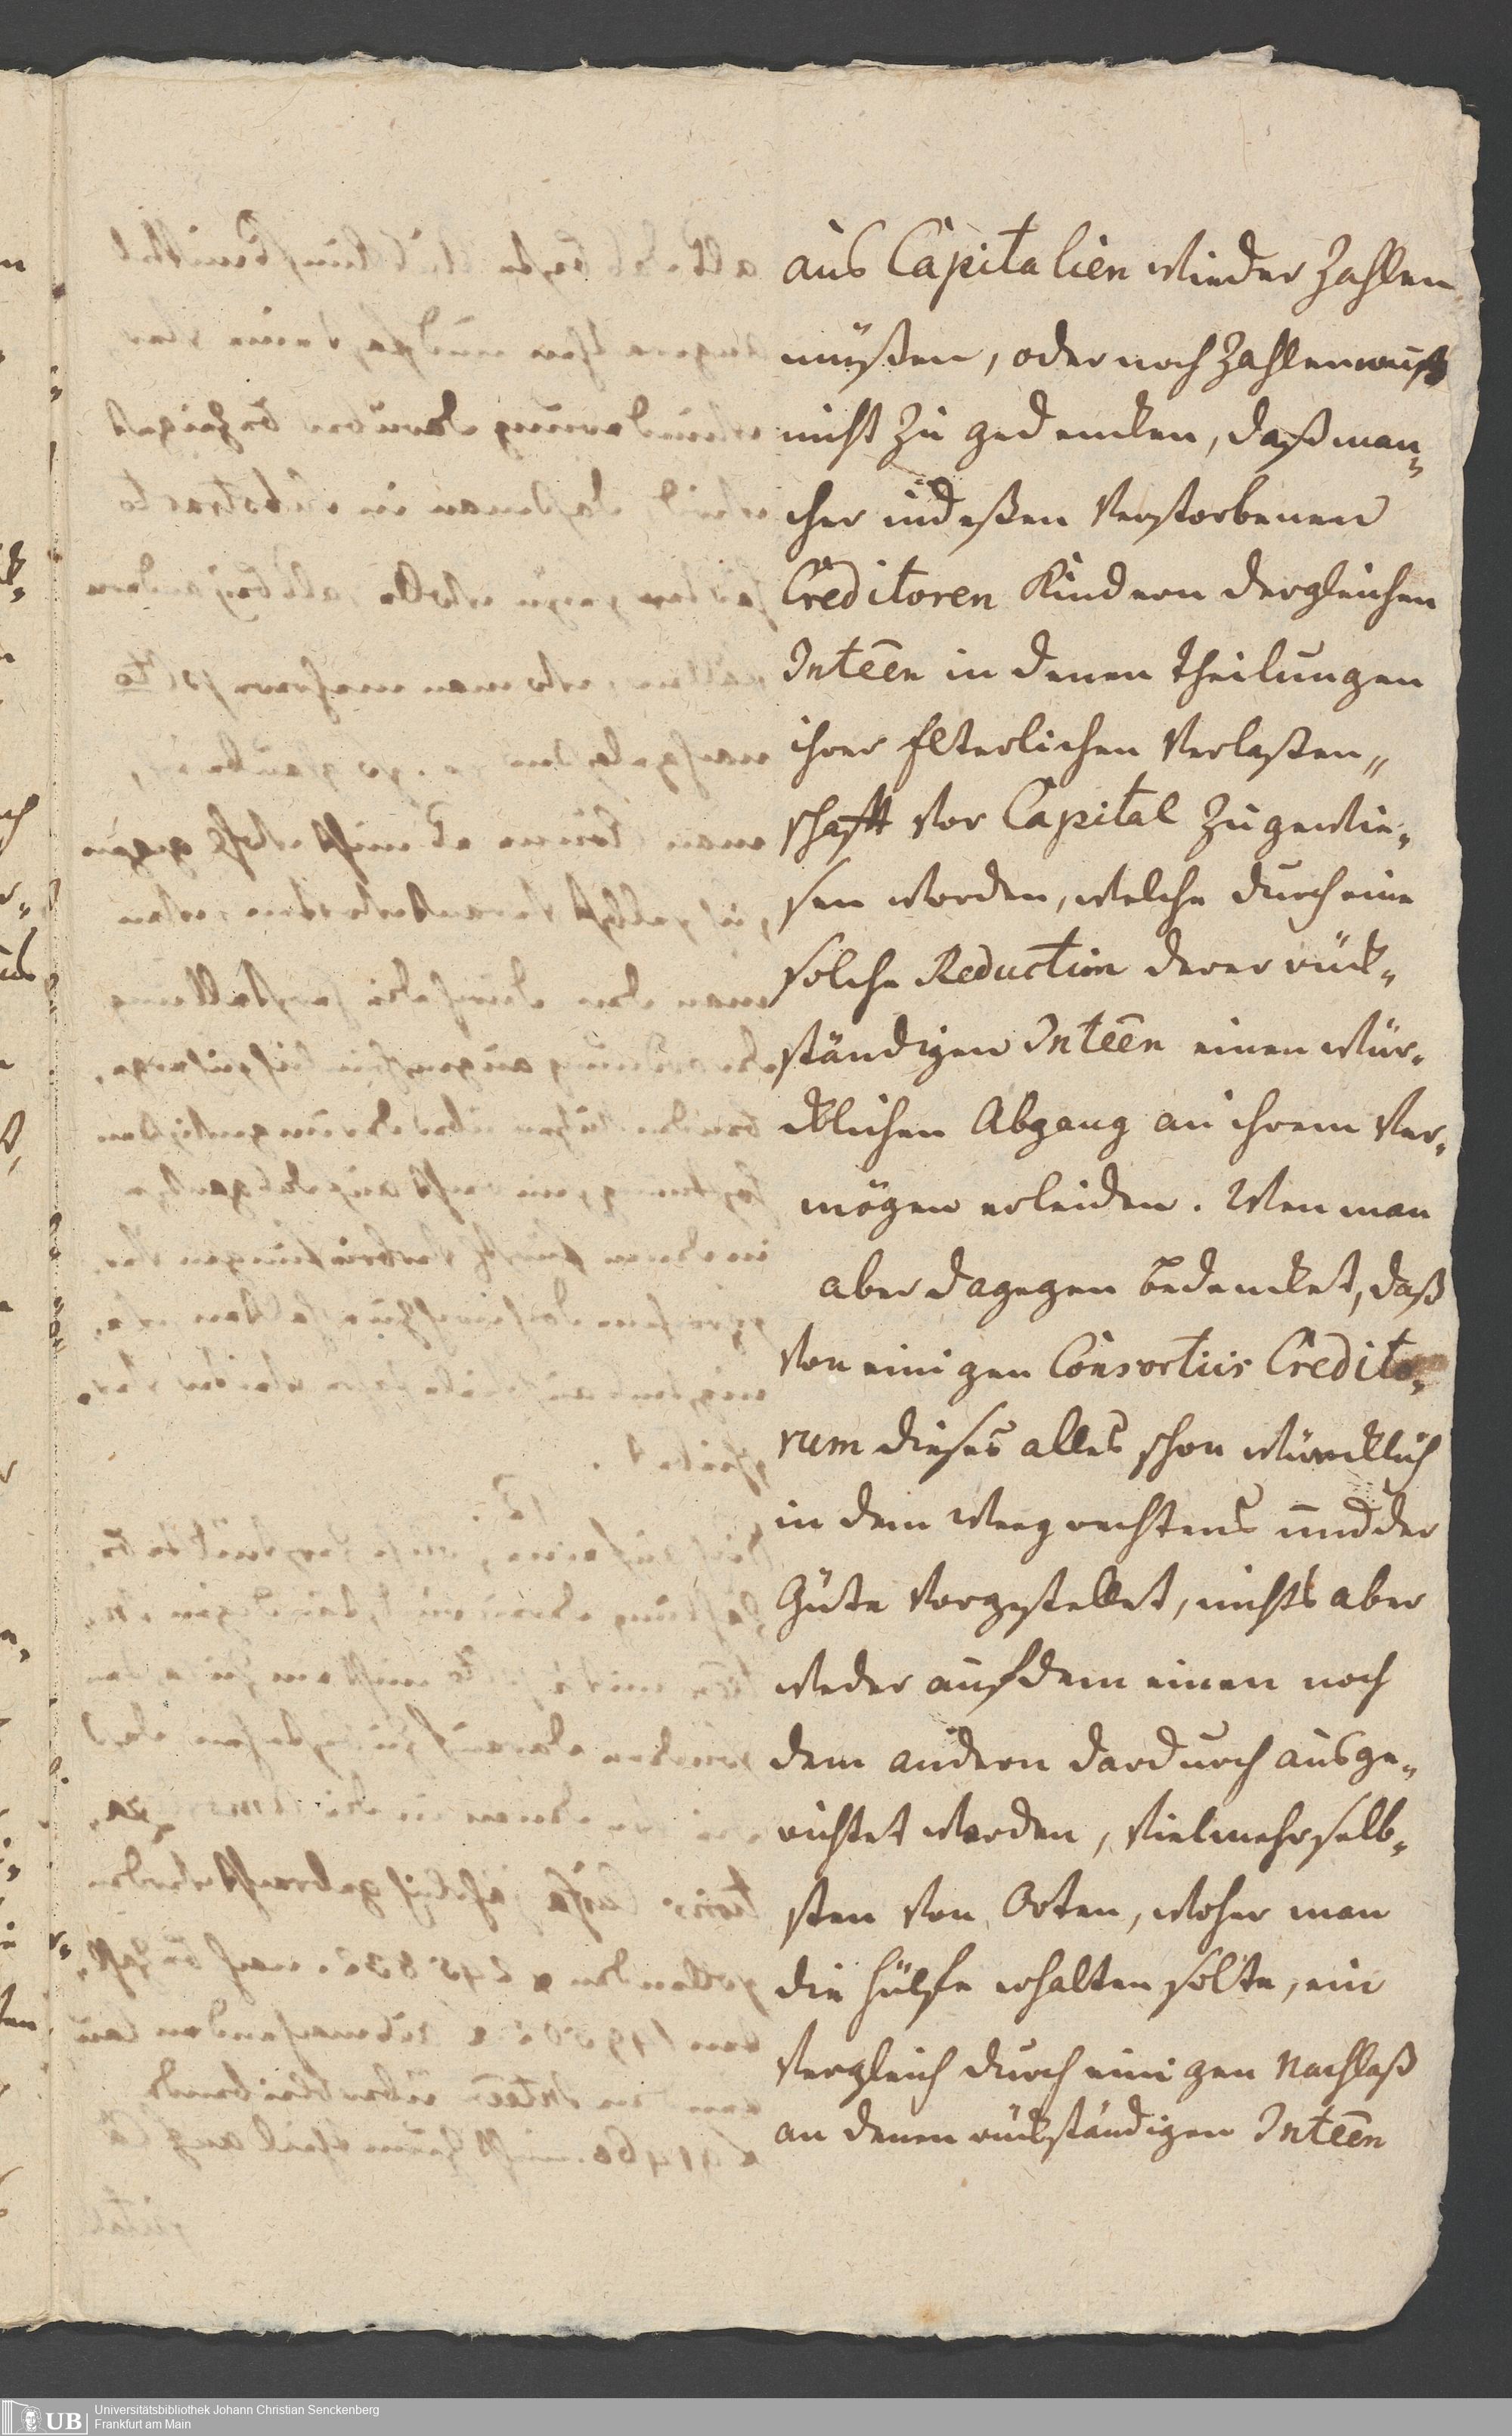 aus Capitalien wieder zahlen
müßen, oder noch zahlen muß
nicht zu gedencken, daß man„
cher indeßen verstorbenen
Creditoren Kindern dergleichen
Inteēn in denen Theilungen
ihrer Elterlichen Verlaßen„
schafft vor Capital zugewie„
sen worden, welche durch eine
solche Reduction derer rück„
ständigen Inteēn einen wür„
cklichen Abgang an ihrem Ver„
mögen erleiden. Wen man
aber dagegen bedencket, daß
von einigen Consortiis Credito„
rum dieses alles schon würcklich
in dem Weeg rechtens und der
Güte vorgestellet, nichts aber
weder auf dem einen noch
dem andern dardurch ausge„
richtet worden, vielmehr selb„
sten von Orten, woher man
die Hülfe erhalten solte, ein
Vergleich durch einigen Nachlaß
an denen rückständigen Inteēn
UB
Universitätsbibliothek Johann Christian Senckenberg
Frankfurt am Main